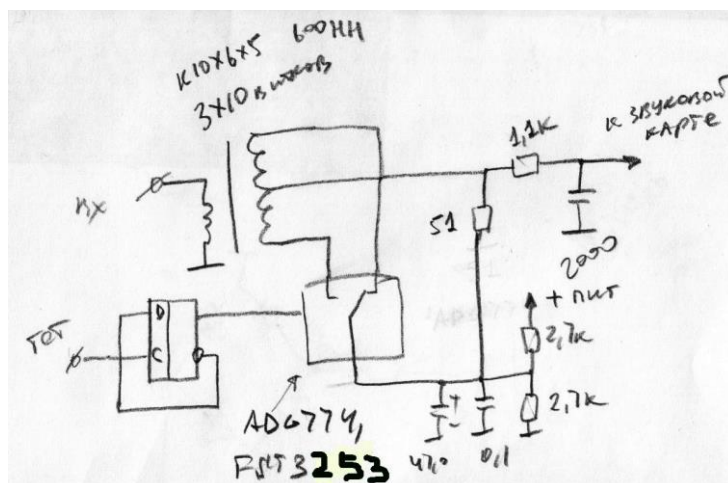 К10х6х5 600НН
3х10 витков
1,1к
к звуковой
карте
вх
51
2000
+ пит
2,7к
2,7к
D
C
гет
ADG774,
FST3253
47,0
0,1